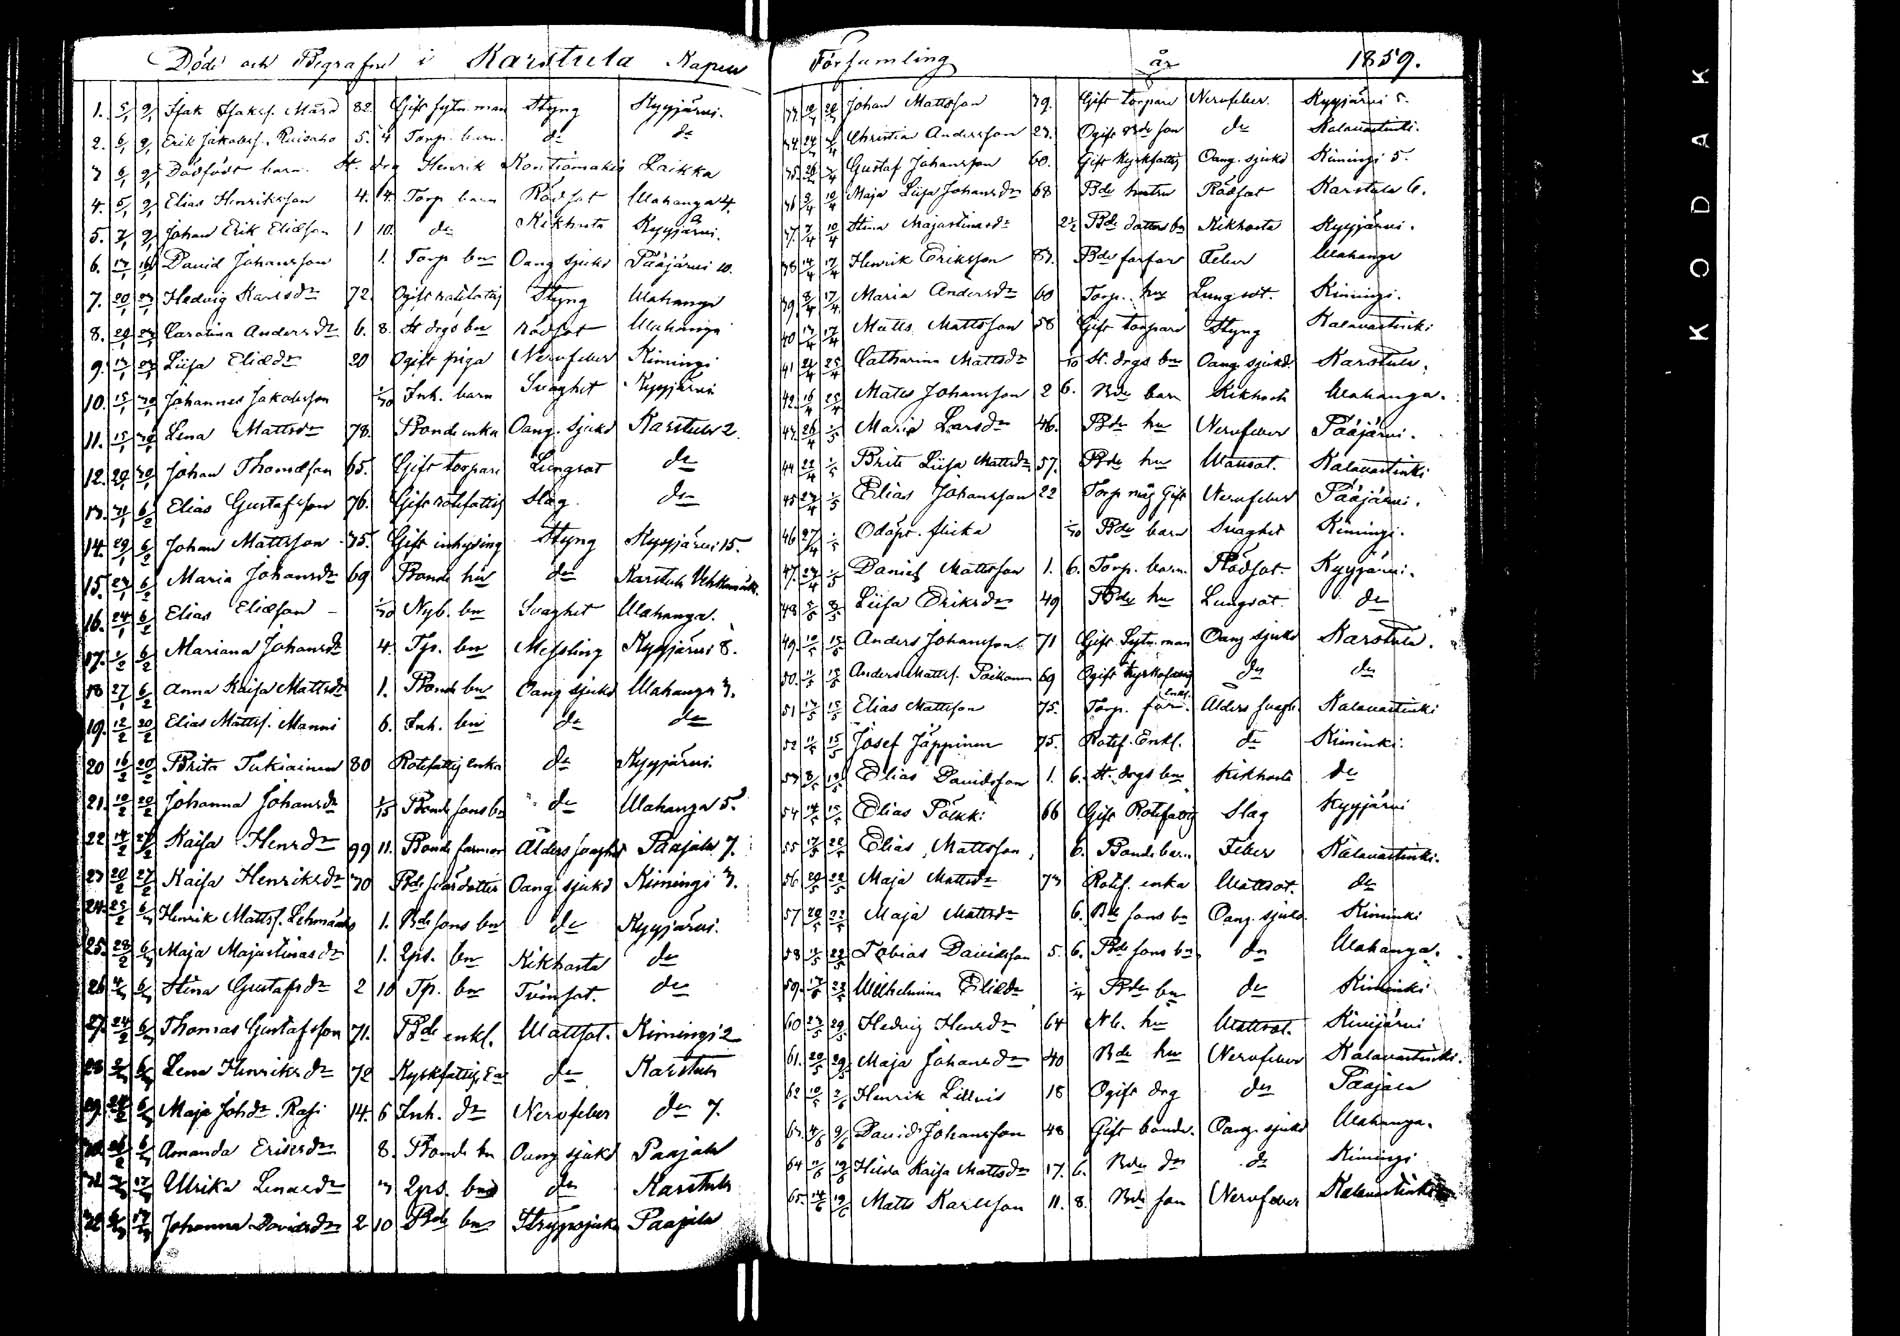 Döde och Begrafne i Karstula Kapell
1. 5/1 9/1 Isak Isaksf. Mård 82. Gift sytn. man Styng Kyyjärvi.
2. 6/1 9/1 Erik Jakobsf. 5. 4 Torp. barn. do do
3 6/1 9/1 Dödfödt barn. St. drg Henrik Kontiomäkis Laikka
4. 5/1 9/1 Elias Henriksson 4. 4. Torp barn Rödsot Wahanga 4.
5. 7/1 9/1 Johan Erik Eliæson 1 10. do Kikhosta Kyyjärvi.
6. 13/1 16/1 David Johansson 1. Torp bn Oang sjukd Pääjärvi 10.
7. 20/1 23/1 Hedvig Karlsdr 72. Ogift rotefattig Styng Wahanga
8. 20/1 23/1 Carolina Andersdr 6. 8. St drgs bn Rödsot Wahanga
9. 13/1 23/1 Liisa Eliædr 20 Ogift piga Nervfeber Kimingi
10. 15/1 30/1 Johannes Jakobsson 1/30 Inh. barn Svaghet Kyyjärvi
11. 15/1 30/1 Lena Mattsdr 78. Bonde enka Oang. sjukd Karstula 2.
12. 20/1 30/1 Johan Thomæson 65. Gift torpare Lungsot do
13. 31/1 6/2 Elias Gustafsson 76. Gift rotefattig Slag. do
14. 29/1 6/2 Johan Mattsson 75. Gift inhysing Styng Kyyjärvi 15.
15. 27/1 6/2 Maria Johansdr 69 Bonde hu do Karstula
16. 24/1 6/2 Elias Eliæson 1/30 Nyb. bn Svaghet Wahanga.
17. 1/2 6/2 Mariana Johansdr 4. Tp. bn Messling Kyyjärvi 8.
18 27/1 6/2 Anna Kaisa Mattsdr 1. Bonde bn Oang sjukd Wahanga 3.
19. 12/2 20/2 Elias Mattsf. Manni 6. Inh. bn do do
20 16/2 20/2 Brita Tukiainen 80 Rotefattig Enka do Kyyjärvi
21. 10/2 20/2 Johanna Johansdr 1/15 Bonde sons bn do Wahanga 5.
22 14/2 27/2 Kaisa Henrdr 99 11. Bonde farmor Ålders svaghet Paajala 7.
23 20/2 27/2 Kaisa Henriksdr 30 Bde svärdotter Oang sjukd Kimingi 3.
24. 25/2 6/3 Henrik Mattsf. 1. Bde sons bn do Kyyjärvi.
25. 28/2 6/3 Maja Majastinasdr 1. 2ps. bn Kikhosta do
26 4/3 6/3 Stina Gustafsdr 2 10 Tp. bn Tvinsot. do
27. 24/2 6/3 Thomas Gustafsson 71. Bde enkl. Wattsot. Kimingi 2
28 6/3 Lena Henriksdr 72 Kyrkfattig Ea do Karstula
29. 6/3 Maja Johdr. Rasi 14. 6 Inh. dr Nervfeber do 7.
30. 6/3 Amanda Eriksdr 8. Bonde bn Oang sjukd Paajala
31. 13/3 Ulrika Lenasdr 3 2ps. bn do Karstula
32 13/3 Johanna Davidsdr 2 10 Bde bn Strypsjuka Paajala
Församling år 1859.
33. Johan Mattsson 39. Gift torpare Nervfeber. Kyyjärvi 5.
34 Christian Andersson 23. Ogift Bde son do Kalavastinki.
35. Gustaf Johansson 60. Gift Kyrkfattig Oang. sjukd Kimingi 5.
36 3/4 10/4 Maja Liisa Johansdr 68 Bde hustru Rödsot Karstula 6.
37. 7/4 10/4 Stina Majastinasdr 2 1/2 Bde dotters bn Kikhosta Kyyjärvi.
38 14/4 17/4 Henrik Eriksson 83. Bde farfar Feber Wahanga
39 8/4 17/4 Maria Andersdr 60 Torp. hu Lungsot. Kimingi.
40 13/4 17/4 Matts Mattsson 58 Gift torpare Styng Kalavastinki
41 24/4 25/4 Catharina Mattsdr 1/10 St. drgs bn Oang. sjukd. Karstula.
42. 16/4 25/4 Matts Johansson 2 6. Bde barn Kikhosta Wahanga.
43. 26/4 1/5 Maria Larsdr 46. Bde hu Nervfeber Pääjärvi.
44 22/4 1/5 Brita Liisa Mattsdr 57. Bde hu Wattsot. Kalavastinki
45 27/4 1/5 Elias Johansson 22 Torp måg Gift Nervfeber Pääjärvi.
46 27/4 1/5 Odöpt. flicka 1/30 Bde barn Svaghet Kimingi.
47. 27/4 1/5 Daniel Mattsson 1. 6. Torp. barn. Rödsot. Kyyjärvi.
48 5/5 8/5 Liisa Eriksdr 49 Bde hu Lungsot do
49. 10/5 15/5 Anders Johansson 71 Gift Sytn. man Oang sjukd Karstula.
50. 11/5 15/5 Anders Mattsf. 69 Ogift Kyrkofattig do do
51 13/5 15/5 Elias Mattsson 75. Torp. far. Enkl. Ålders svagh. Kalavastinki
52 11/5 15/5 Josef Jäppinen 75. Rotef. Enkl. do Kiminki.
53 8/5 Elias Davidsson 1. 6. St. drgs bn Kikhosta do
54 14/5 15/5 Elias Pölkki 66 Gift Rotefattig Slag Kyyjärvi
55 17/5 22/5 Elias Mattsson 6. Bonde barn Feber Kalavastinki.
56 20/5 22/5 Maja Mattsdr 73 Rotef. enka Wattsot. do
57 20/5 22/5 Maja Mattsdr 6. Bde sons bn Oang. sjukd. Kiminki
58 22/5 Tobias Davidsson 5. 6. Bde sons bn do Wahanga.
59. Wilhelmina Eliædr 1/4 Bde bn do Kiminki
60 27/5 29/5 Hedvig Henrdr 64 Nb. hu Wattsot. Kivijärvi
61. 20/5 29/5 Maja Johansdr 40 Bde hu Nervfeber Kalavastinki.
62 2/6 Henrik Lillvis 18 Ogift drg do Paajala
63. 4/6 9/6 David Johansson 48 Gift bonde. Oang. sjukd Wahanga.
64 11/6 19/6 Hilda Kaisa Mattsdr 17. 6. Bde dr do Kimingi
65. 14/6 19/6 Matts Karlsson 11. 8. Bde son Nervfeber Kalavastinki
KODAK